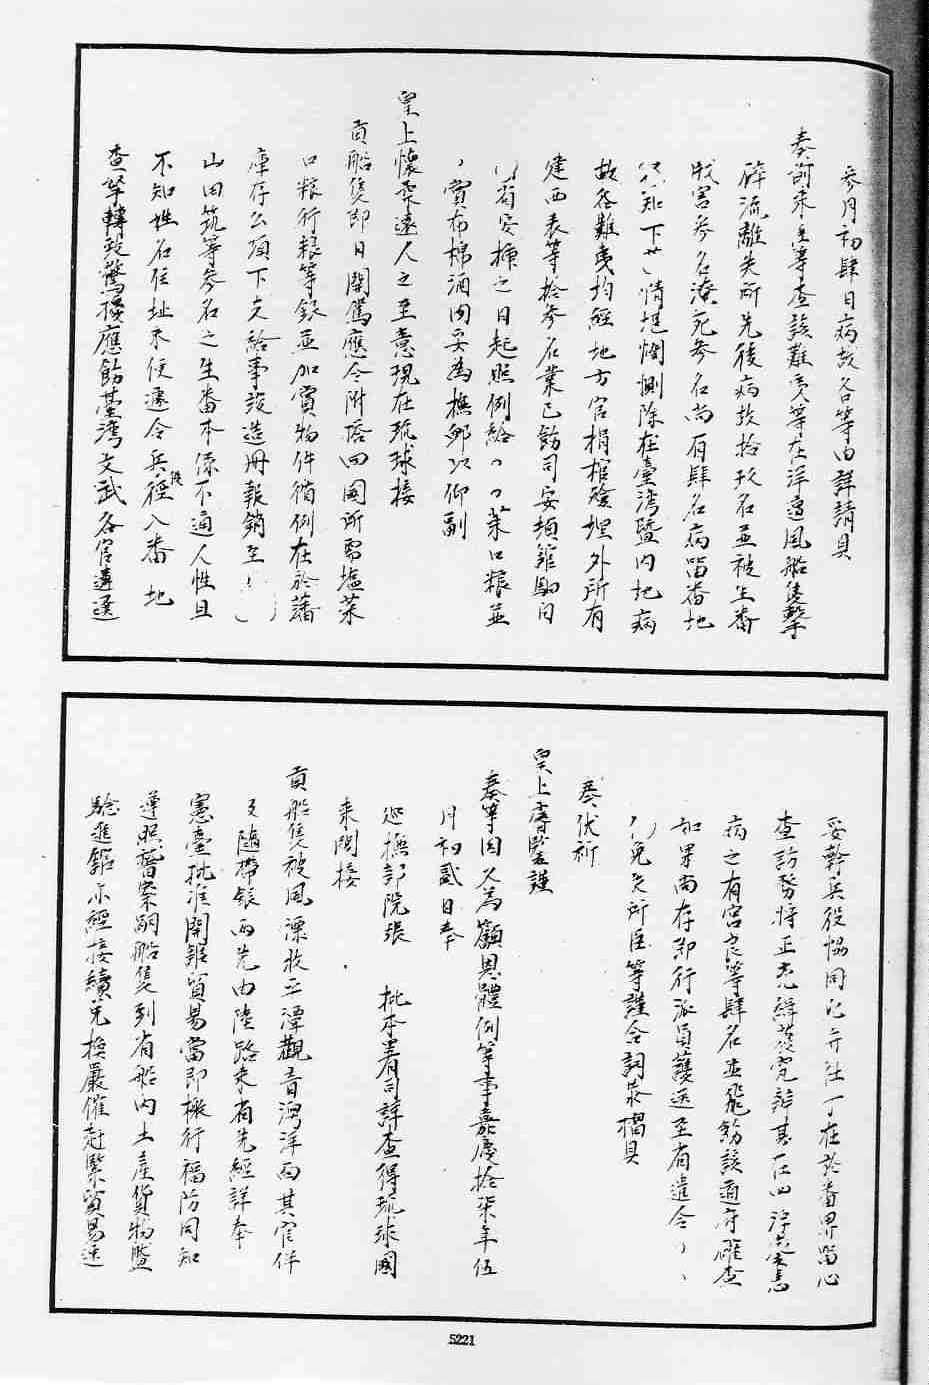 參月初肆日病故各等由詳請具
奏前來臣等查該難夷等在洋遭風船隻擊
碎流離失所先後病故拾玖名並被生番
戕害參名潦死參名尚有肆名病留番地
知下情堪憫惻除在臺灣暨内地病
故各難夷均經地方官捐棺殮埋外所有
建西表等拾參名業已飭司安頓館驛自
省安揷之日起照例給菜口粮並
賞布棉酒回妥為撫卹以仰副
皇上懷柔遠人之至意現在琉球接
貢船隻即日開駕應令附搭回國所需塩菜
口粮行粮等銀並加賞物件循例在於藩
庫存公項下支給事竣造冊報銷至
山田筑等參名之生番本係不通人性且
不知姓名住址未便遽令兵役徑入番地
查拏轉致驚擾應飭臺灣文武各官遴選
妥幹兵役協同屯弁社丁在於番界留心
查訪務將正兇緝獲究辦其在山
病之有宮良等肆名並飛飭該道府確查
如果尚存即行派員護送至省遣令
免失所臣等謹合詞恭摺具
奏伏祈
皇上睿鑒謹
奏等因又為籲恩體例等事嘉慶拾柒年伍
月初貳日奉
巡撫部院張 批本署司詳查得琉球國
來閩接
貢船隻被風漂收平潭觀音澳洋面其官伴
隨帶銀兩先由陸路來省先經詳奉
憲臺批准開館貿易當即檄行福防同知
遵照舊案嗣船隻到省船内土產貨物盤
驗進館亦經接續兌換嚴催赶緊貿易速
5221